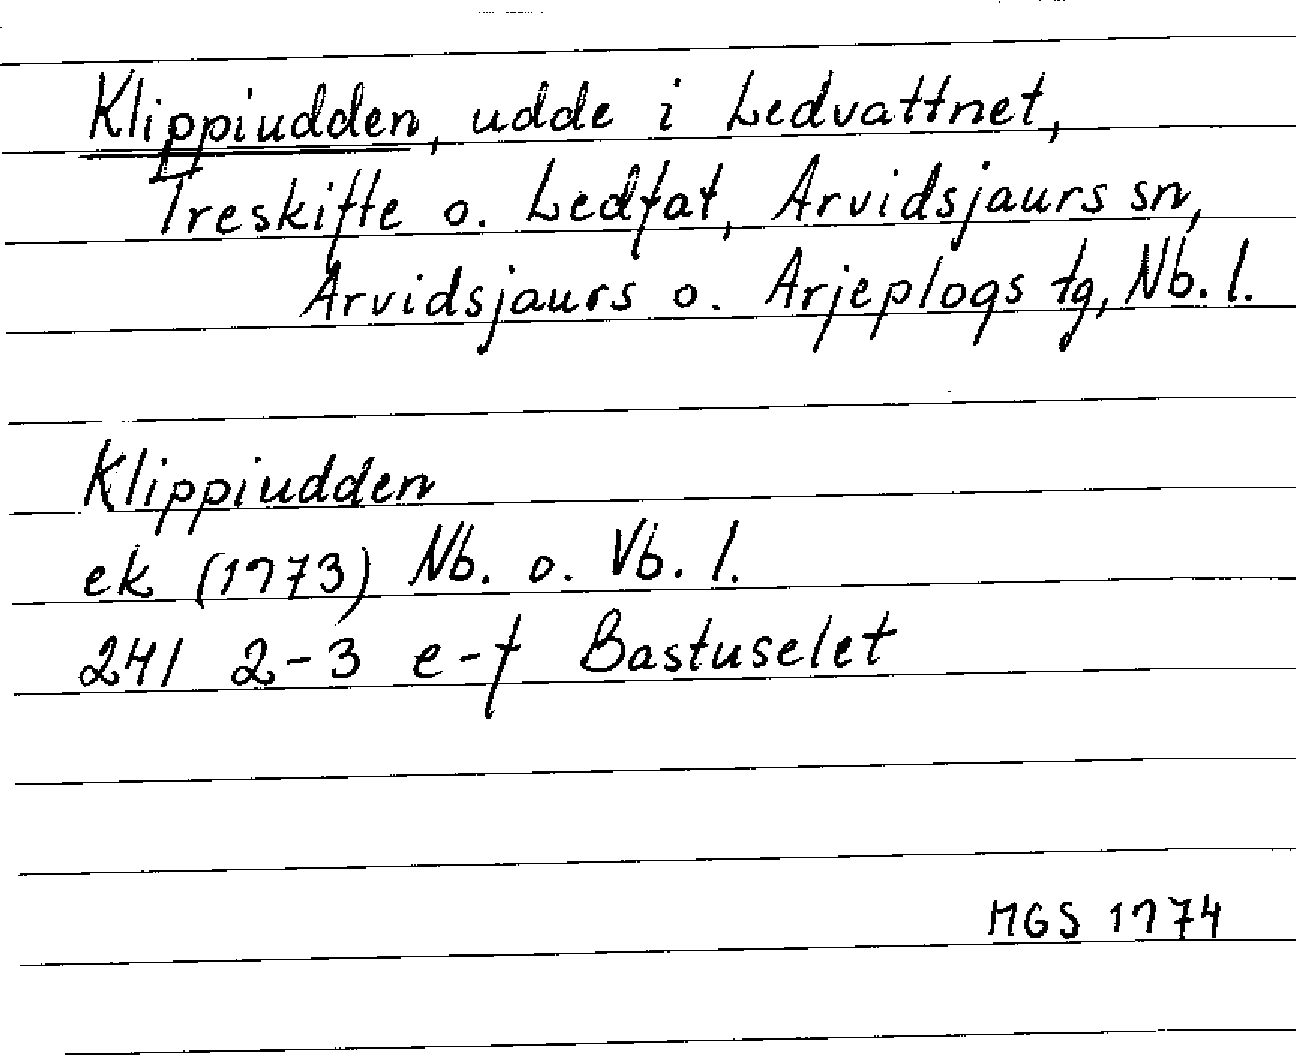 Klippiudden, udde i Ledvattnet,
Treskifte o. Ledfat, Arvidsjaurs sn,
Arvidsjaurs o. Arjeplogs tg, Nb. l.
Klippiudden
ek (1973) Nb. o. Vb. l.
24I 2-3 e-f Bastuselet
MGS 1974